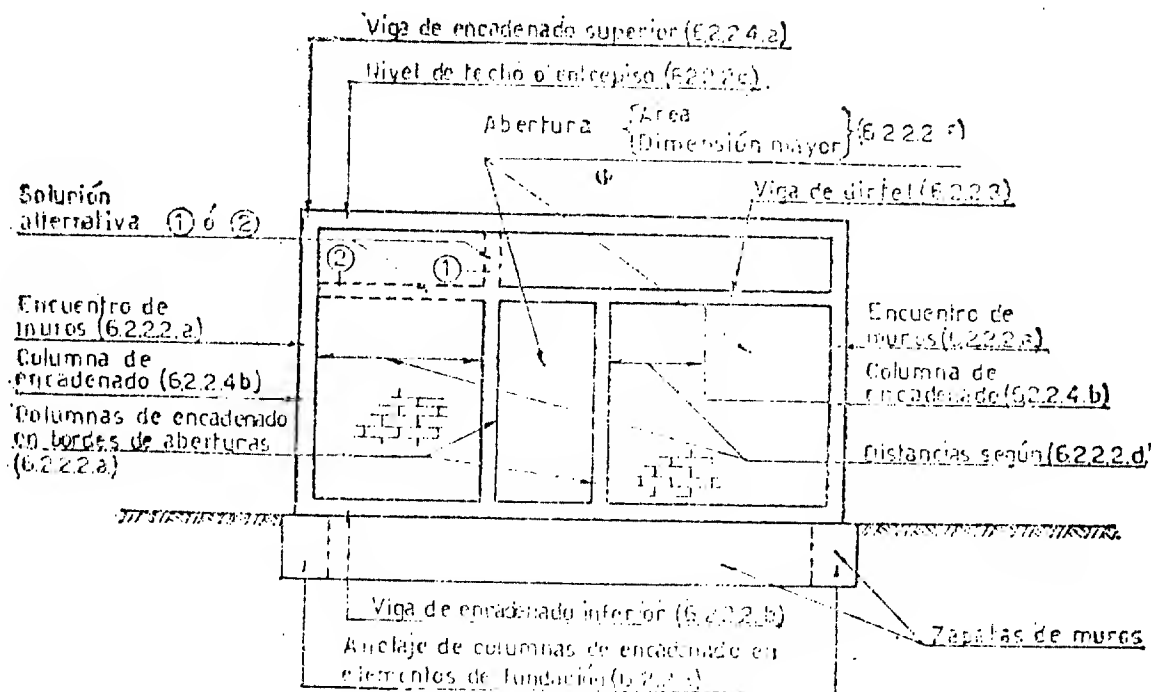 Viga de encadenado superior (6.2.2.4.a)
Nivel de techo o entrepiso (6.2.2.2c)
Abertura {Area
Dimensión mayor} (6.2.2.2
Viga de dintel (6.2.2.3)
Solución
alternativa ① ó ②
②
①
Encuentro de
muros (6.2.2.2.a)
Columna de
encadenado (6.2.2.4b)
Columnas de encadenado
en bordes de aberturas
(6.2.2.2.a)
Encuentro de
muros (6.2.2.2.a)
Columna de
encadenado (6.2.2.4.b)
Distancias según (6.2.2.2.d)
Viga de encadenado inferior (6.2.2.2.b)
Anclaje de columnas de encadenado en
elementos de fundación
Zapatas de muros